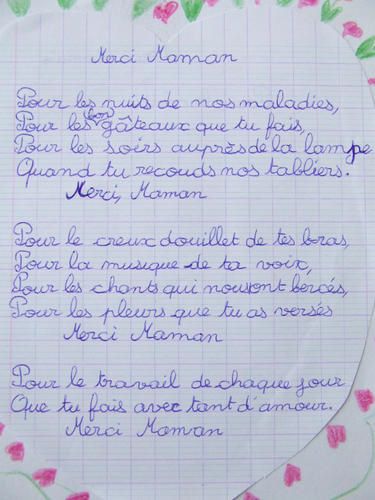 Merci Maman
Pour les nuits de nos maladies,
Pour les bon gâteaux que tu fais,
Pour les soirs auprès de la lampe
Quand tu recouds nos tabliers.
Merci, Maman
Pour le creux douillet de tes bras,
Pour la musique de ta voix,
Pour les chants qui nous ont bercés,
Pour les pleurs que tu as versés
Merci Maman
Pour le travail de chaque jour
Que tu fais avec tant d'amour.
Merci Maman